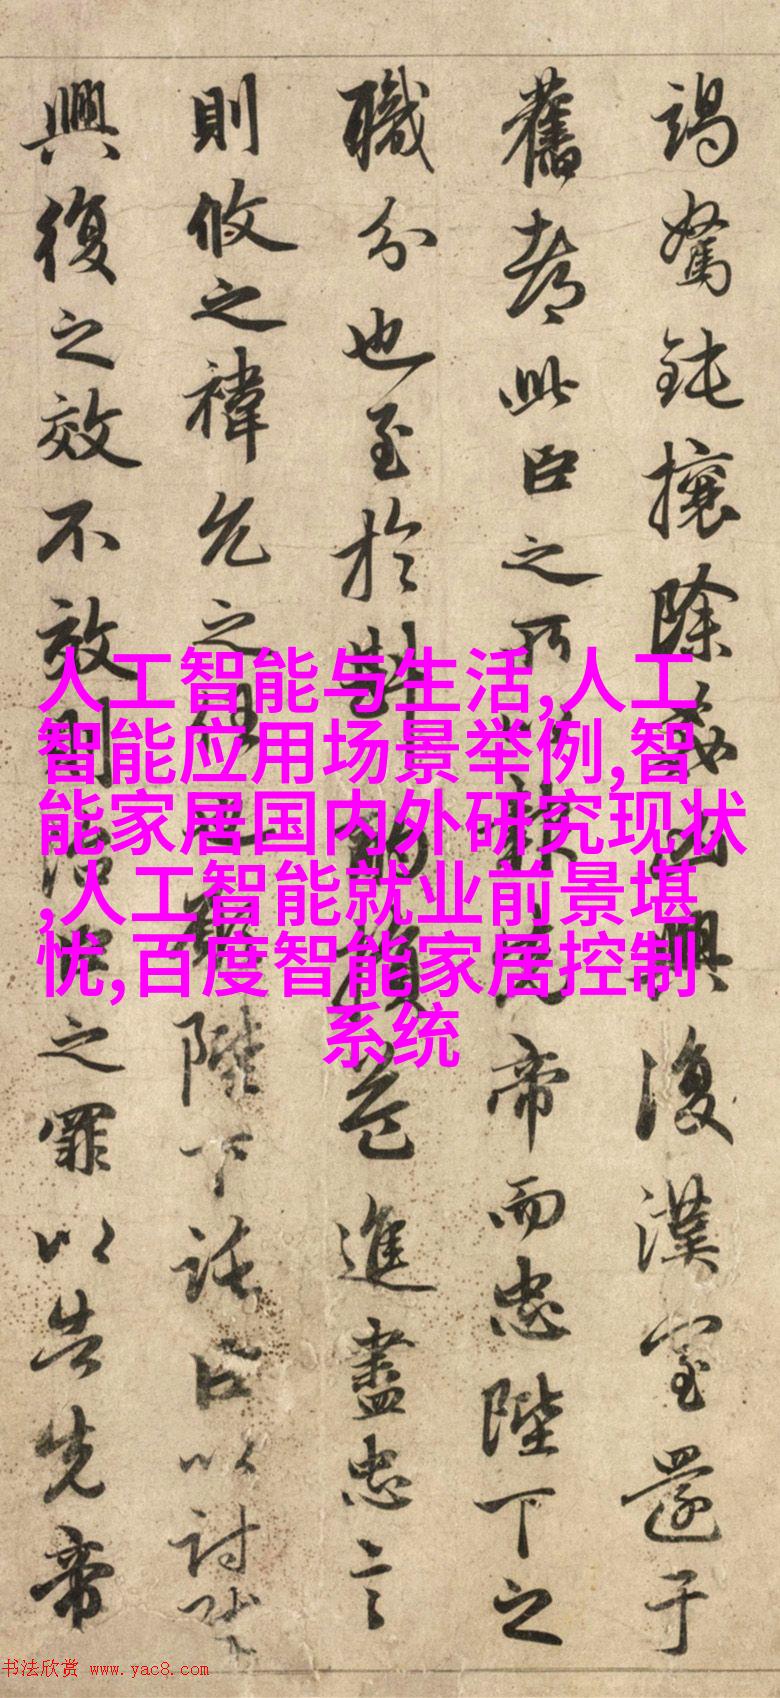 竭駑鈍攘除姦凶興復漢室還于
舊都此臣之所以報先帝而忠陛下之
職分也至於斟酌損益進盡忠言
則攸之禕允之任也願陛下託臣以討賊
興復之效不效則治臣之罪以告先帝
人工智能与生活,人工
智能应用场景举例,智
能家居国内外研究现状
,人工智能就业前景堪
忧,百度智能家居控制
系统
书法欣赏 www.yac8.com